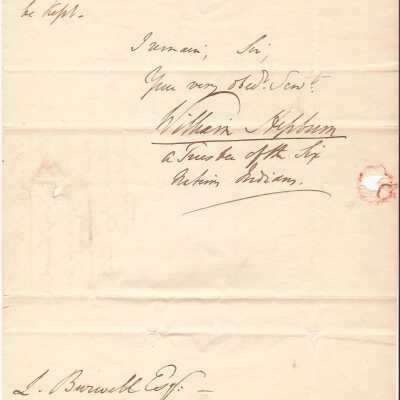 be Kept.
I remain, Sir,
Your very obedt. Servt.
William Hepburn
a Trustee of the Six
Nations Indians.
L. Burwell Esqr. —